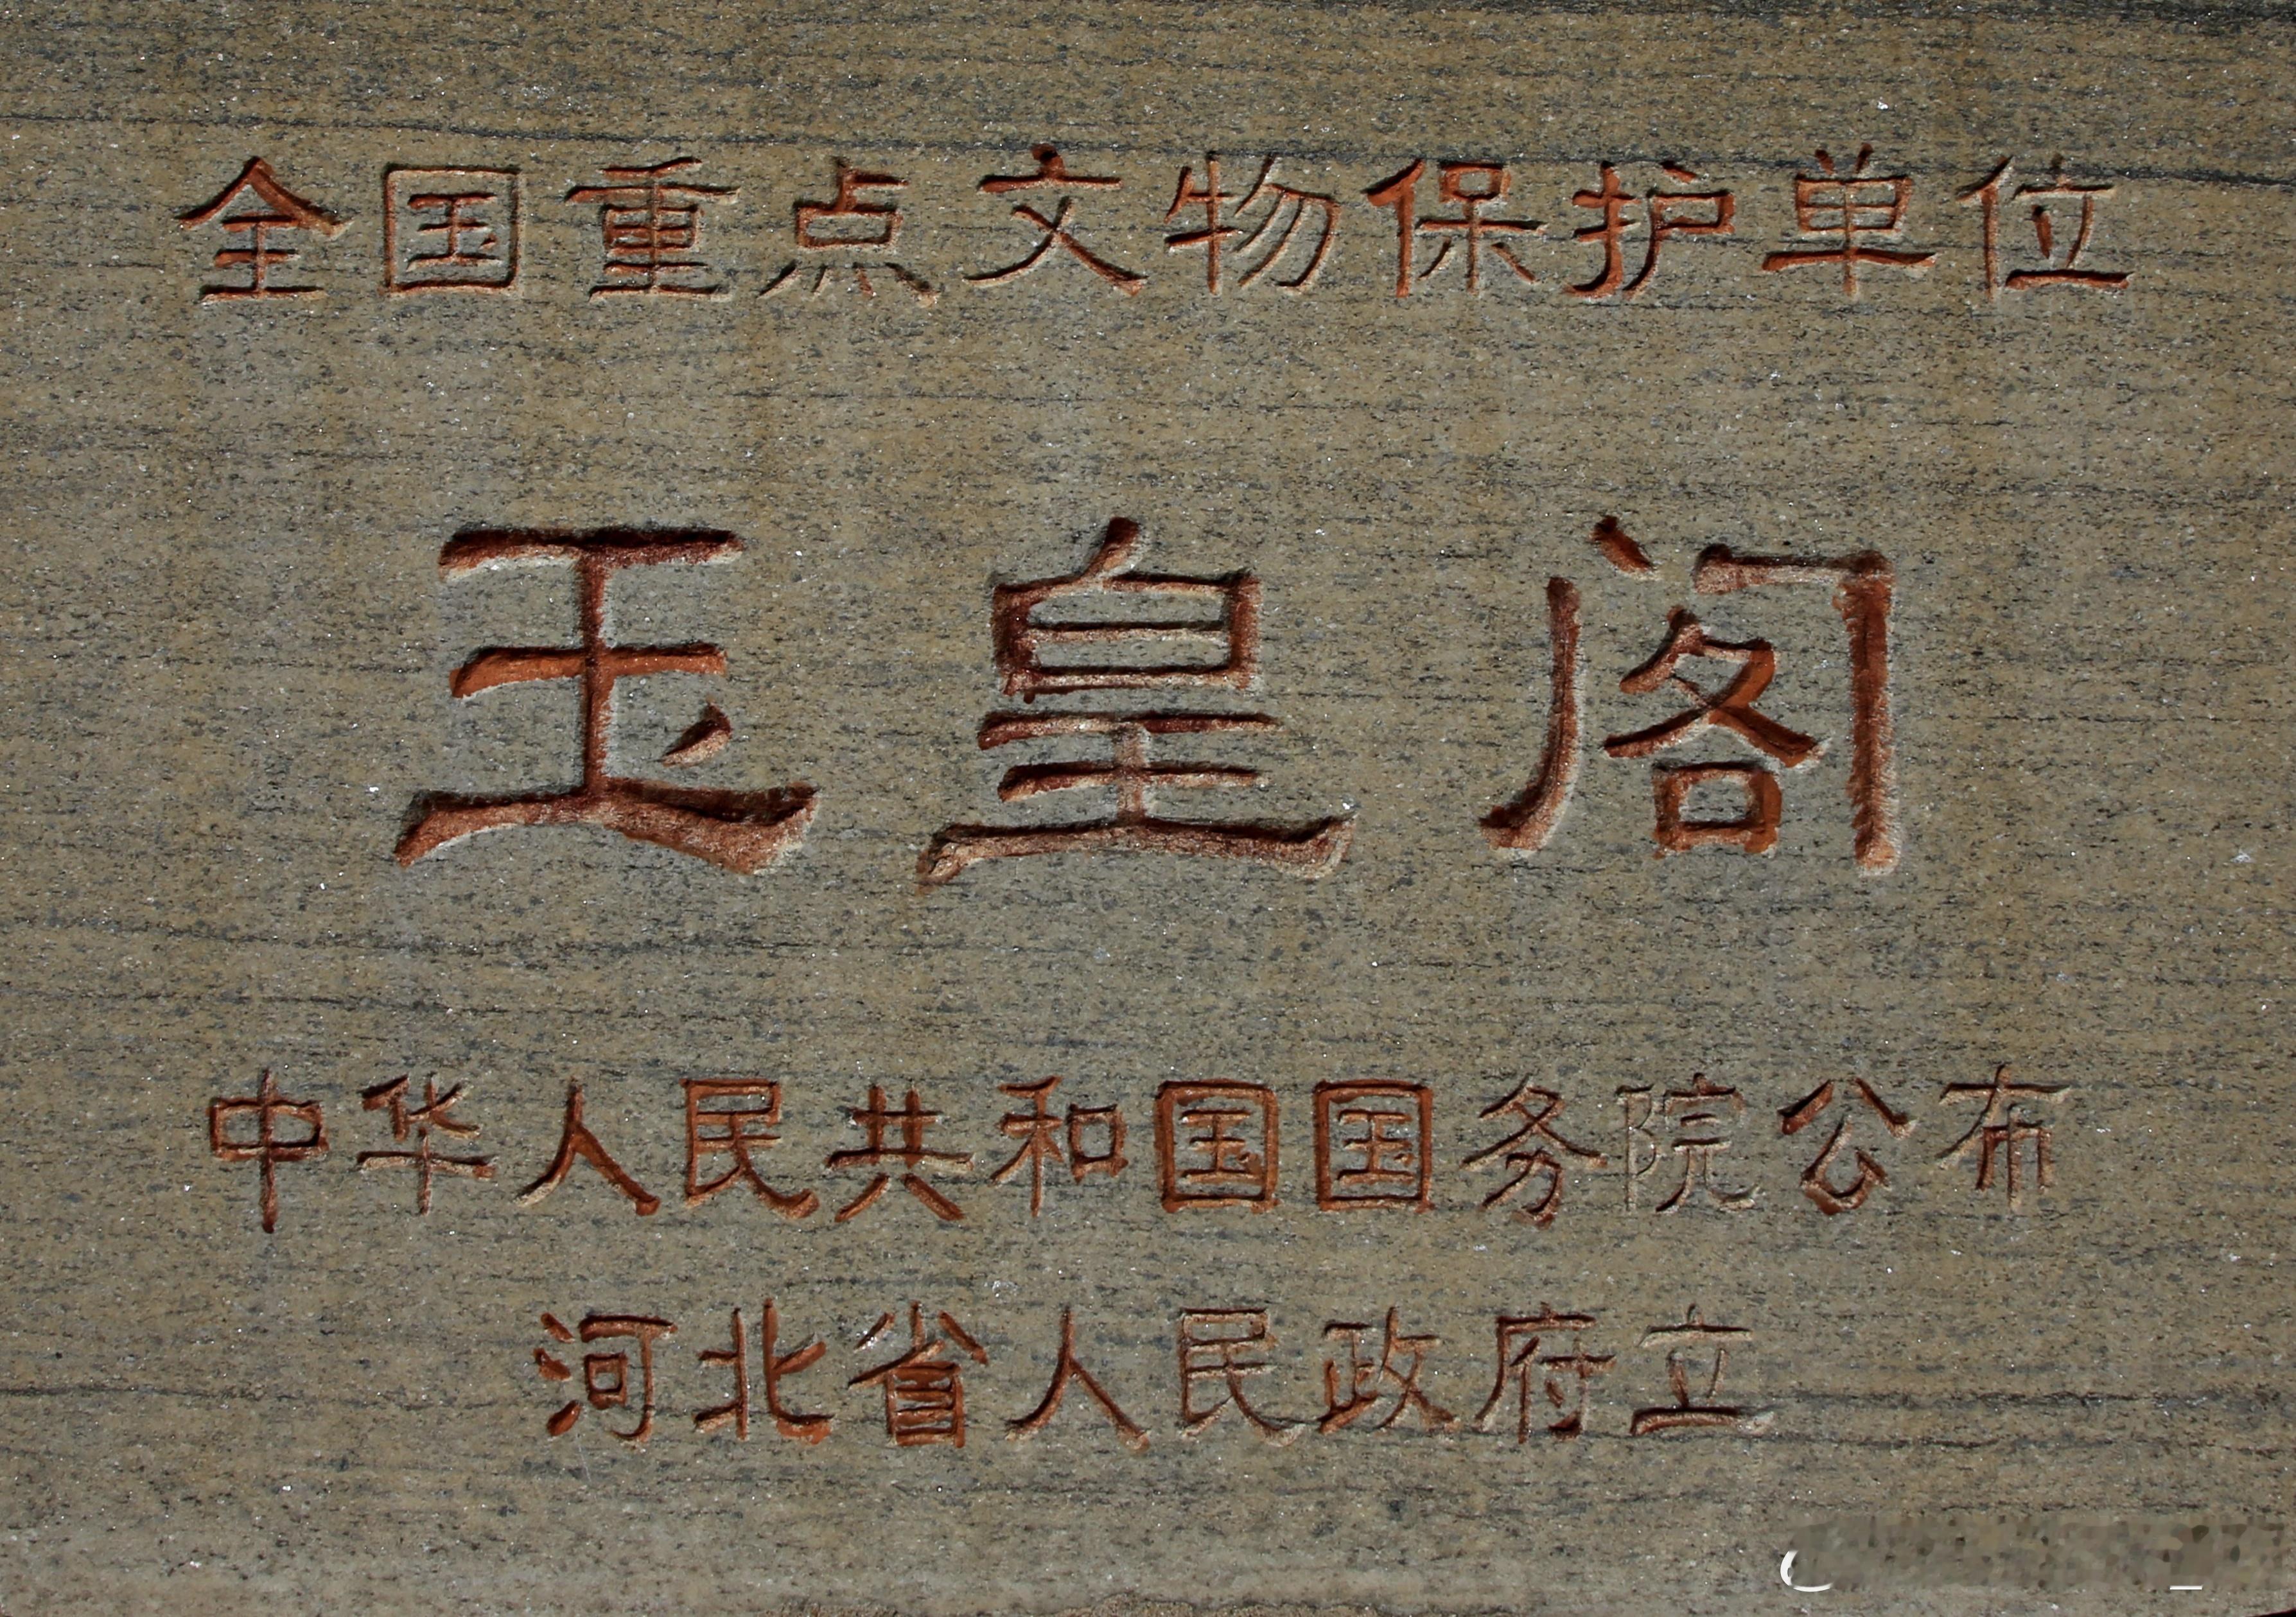 全国重点文物保护单位
玉皇阁
中华人民共和国国务院公布
河北省人民政府立